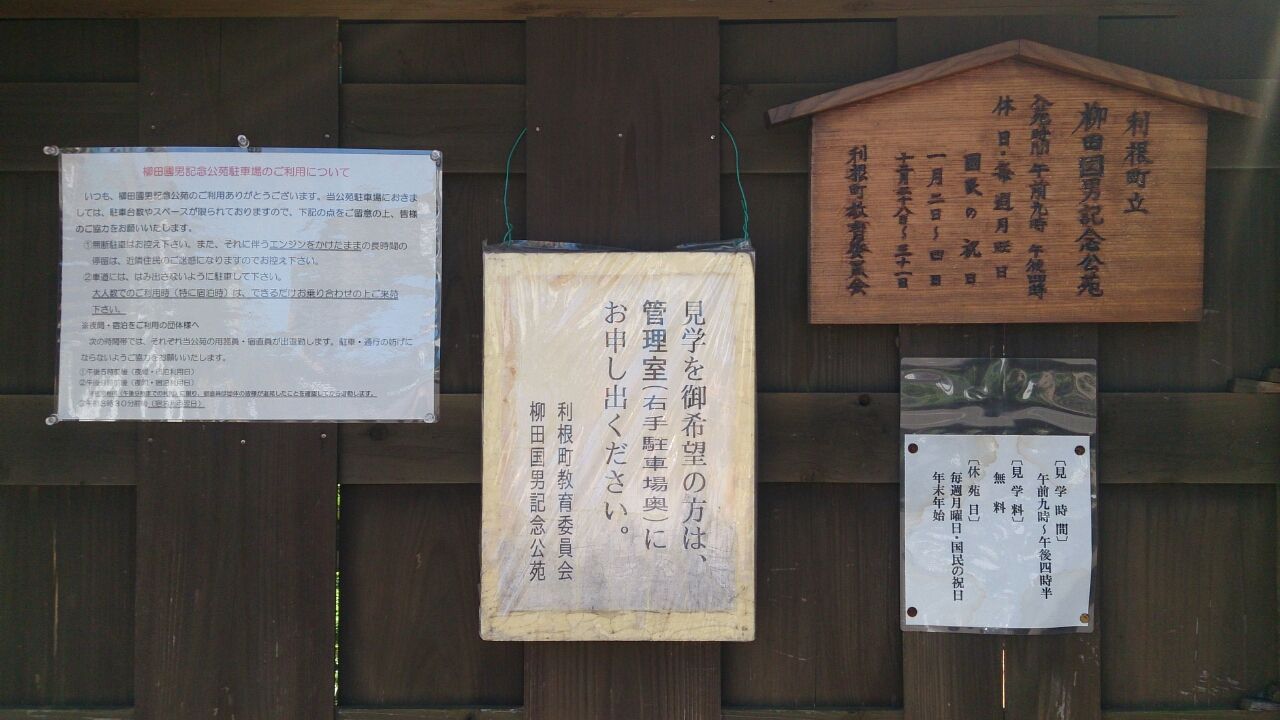 柳田國男記念公苑駐車場のご利用について
いつも、柳田國男記念公苑のご利用ありがとうございます。当公苑駐車場におきま
しては、駐車台数やスペースが限られておりますので、下記の点をご留意の上、皆様
のご協力をお願いいたします。
①無断駐車はお控え下さい。また、それに伴うエンジンをかけたままの長時間の
停留は、近隣住民のご迷惑になりますのでお控え下さい。
②車道には、はみ出さないように駐車して下さい。
大人数でのご利用時(特に宿泊時)は、できるだけお乗り合わせの上ご来苑
下さい。
※夜間・宿泊をご利用の団体様へ
次の時間帯では、それぞれ当公苑の用務員・宿直員が出退勤します。駐車・通行の妨げに
ならないようご協力をお願いいたします。
①午後5時前後(夜間・宿泊利用日)
②午後9時前後(夜間・宿泊利用日)
③午前8時30分前後(宿泊利用翌日)
見学を御希望の方は、
管理室(右手駐車場奥)に
お申し出ください。
利根町教育委員会
柳田国男記念公苑
利根町立
柳田國男記念公苑
入苑時間 午前九時 午後四時
休日・毎週月曜日
國民の祝日
一月二日〜四日
十二月二十八日〜三十一日
利根町教育委員会
〔見学時間〕
午前九時〜午後四時半
〔見学料〕
無料
〔休苑日〕
毎週月曜日・国民の祝日
年末年始